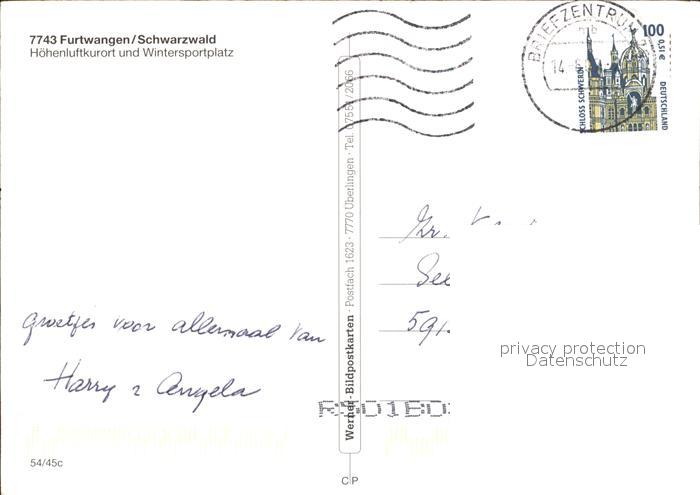 7743 Furtwangen/Schwarzwald
Höhenluftkurort und Wintersportplatz
BRIEFZENTRUM
14.-6
100
0,51 €
SCHLOSS SCHWERIN
DEUTSCHLAND
Groetjes voor allemaal van
Harry & Angela
591
privacy protection
Datenschutz
Werner-Bildpostkarten · Postfach 1623 · 7770 Überlingen · Tel. 07551/2066
54/45c
C P